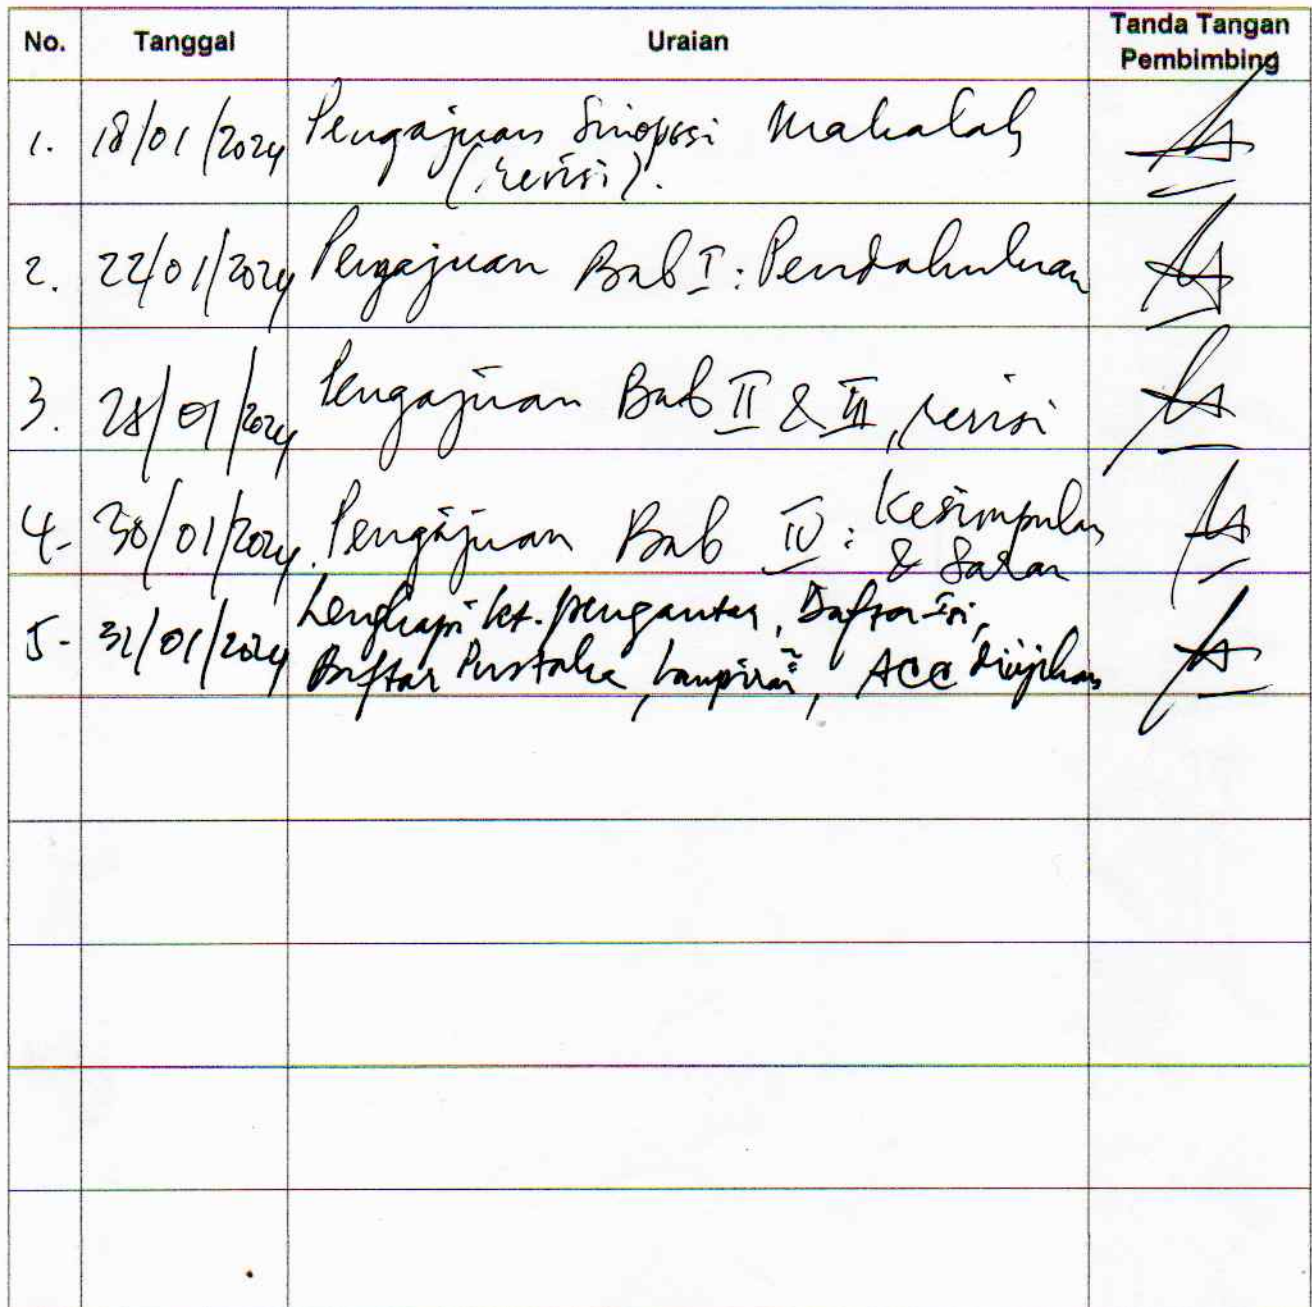 No. Tanggal Uraian Tanda Tangan
Pembimbing
1. 18/01/2024 Pengajuan Sinopssi Makalah
(revisi).
2. 22/01/2024 Pengajuan Bab I : Pendahuluan
3. 28/01/2024 Pengajuan Bab II & III, revisi
4- 30/01/2024 Pengajuan Bab IV : Kesimpulan
& Saran
5- 31/01/2024 Lengkapi kt. pengantar, Daftar Isi,
Daftar Pustaka, Lampiran, ACC diujikan